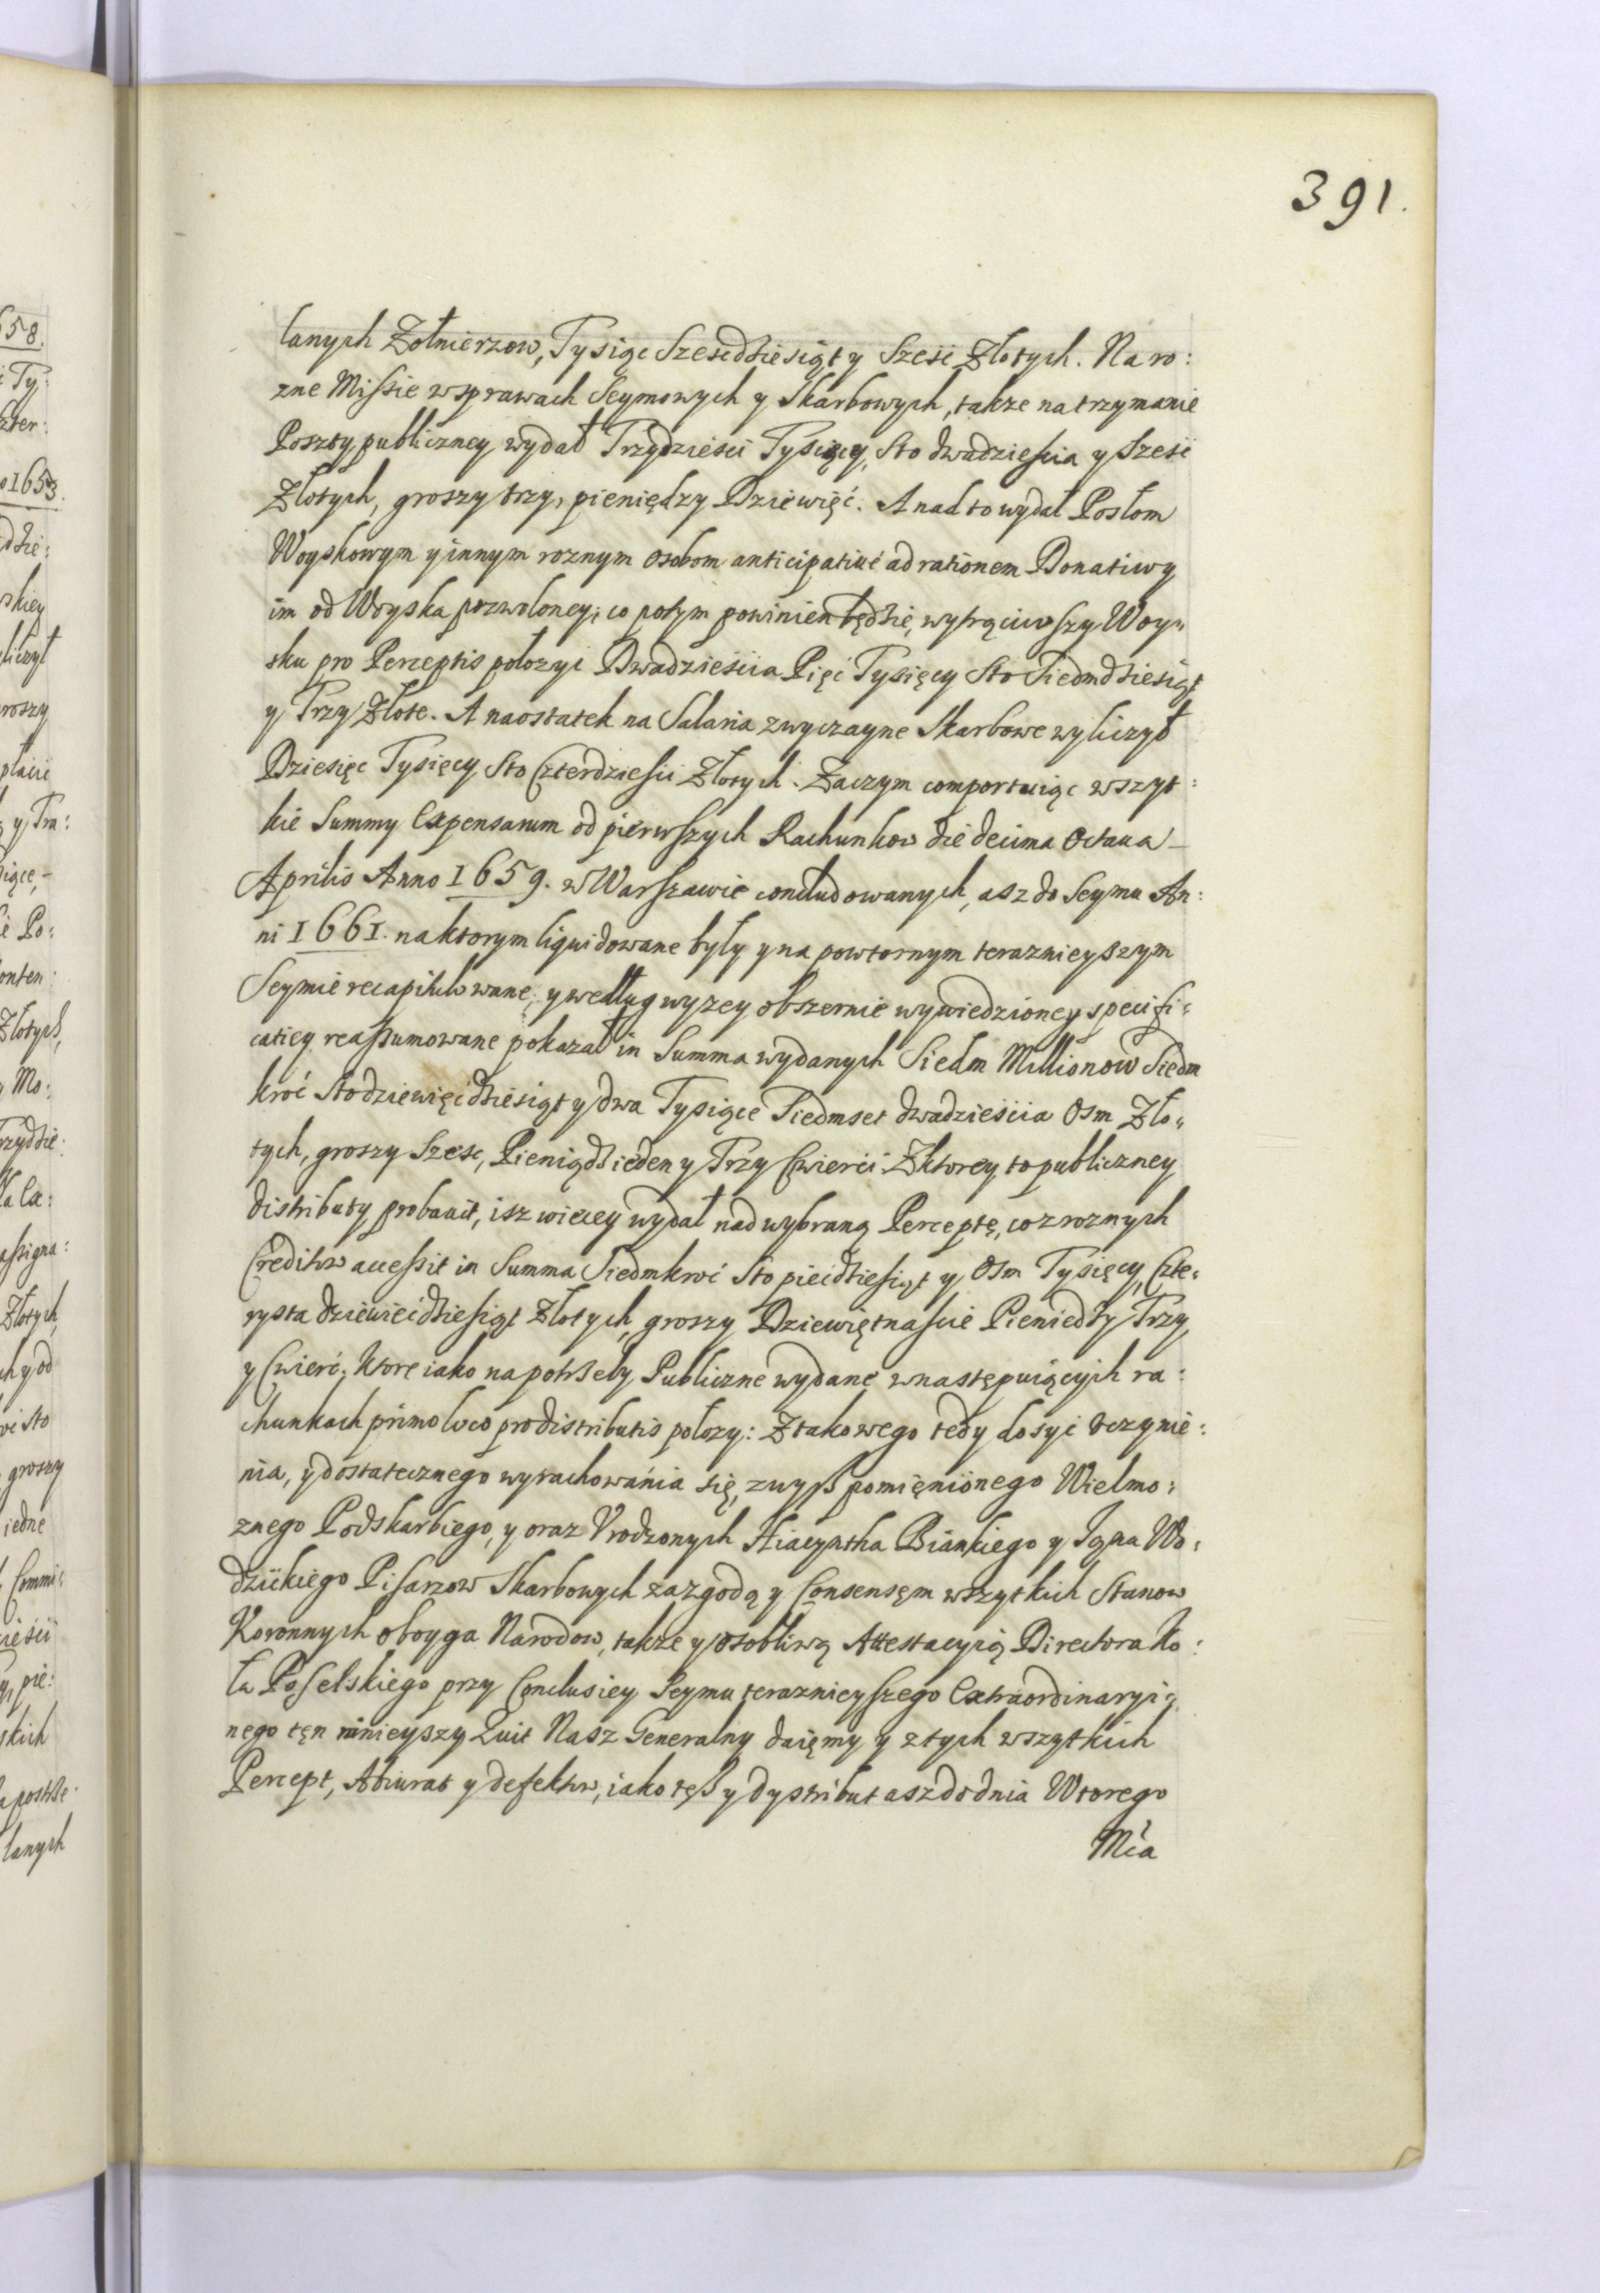 391.
lanych Zołnierzow, Tysiąc Szescdziesiąt y Szesc Złotych. Na ro:
zne Missie w sprawach Seymowych y Skarbowych, takze na trzymanie
Poszty publiczney wydał Trzydziesci Tysięcy, Sto dwadziescia y Szesc
Złotych, groszy trzy, pieniędzy Dziewięć. A nad to wydał Posłom
Woyskowym y innym roznym osobom anticipatiué ad rationem Donatiwy
im od Woyska pozwoloney, co potym powinien będzie, wytrąciwszy Woy=
sku pro Perceptis położyc Dwadzieścia Pięć Tysięcy Sto Siedmdziesiąt
y Trzy Złote. A naostatek na Salaria zwyczayne Skarbowe wyliczył
Dziesięc Tysięcy Sto Czterdziesci Złotych. Zaczym comportuiąc wszyt:
kie Summy Expensarum od pierwszych Rachunkow die decima Octaua
Aprilis Anno 1659. w Warszawie concludowanych, asz do Seymu An:
ni 1661. na ktorym liquidowane były y na powtornym teraznieyszym
Seymie recapitulowane, y według wyzey obszernie wywiedzioney specifi:
catiey reassumowane pokazał in Summa wydanych Siedm Millionow Siedm
kroć Sto dziewięcdziesiąt y dwa Tysiące Siedmset dwadzieścia Osm Zło=
tych, groszy Szesc, Pieniądz ieden y Trzy Cwierci. Z ktorey to publiczney
distributy probauit, isz wiecey wydał nad wybraną Perceptę, co z roznych
Creditow accessit in Summa Siedmkroć Sto piecdziesiąt y Osm Tysięcy, Czte=
rysta dziewiecdziesiąt Złotych, groszy Dziewiętnascie Pieniedzy Trzy
y Cwierć. Ktore iako na potrzeby Publiczne wydane w następuiących ra:
chunkach primo loco pro distributis położy: Z takowego tedy dosyc uczynie:
nia, y dostatecznego wyrachowania się, zwysz pomięnionego Wielmo:
znego Podskarbiego, y oraz Vrodzonych Hiacyntha Biankiego y Jgna Wo:
dzickiego Pisarzow Skarbowych za zgodą y Consensęm wszytkich Stanow
Koronnych oboyga Narodow, takze y osobliwą Attestacyią Directora Ko:
ła Poselskiego przy Conclusiey Seymu teraznieyszego Extraordinaryi:
nego tęn ninieyszy Quit Nasz Generalny daięmy y z tych wszytkich
Percept, Abiurat y defektow, iako tęsz y dystribut asz do dnia Wtorego
Mca